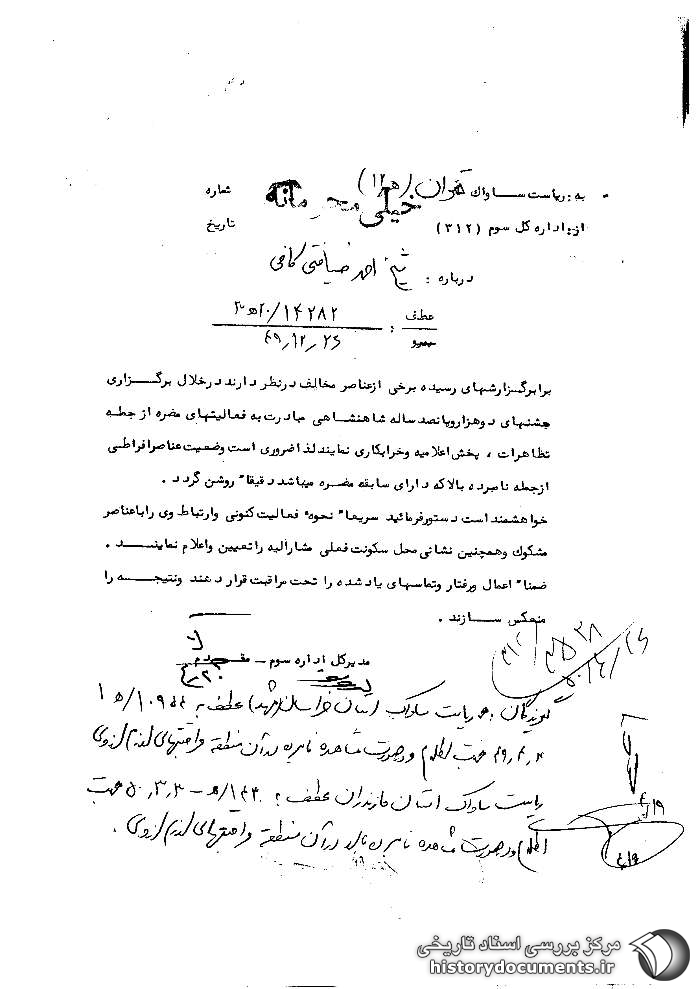 به: ریاست ساواک تهران (۱۲ه) شماره
خیلی محرمانه
از: اداره کل سوم (۳۱۲) تاریخ
درباره: شیخ احمد ضیافتی کافی
عطف : ۱۴۲۸۲/۲۰ه‍۳
پیرو ۴۹٫۱۲٫۲۶
برابرگزارشهای رسیده برخی ازعناصر مخالف درنظر دارند درخلال برگزاری
جشنهای دوهزاروپانصد ساله شاهنشاهی مبادرت به فعالیتهای مضره از جمله
تظاهرات ، پخش اعلامیه وخرابکاری نمایند لذا ضروری است وضعیت عناصر افراطی
ازجمله نامبرده بالا که دارای سابقه مضره میباشد دقیقا" روشن گردد .
خواهشمند است دستورفرمائید سریعا" نحوه فعالیت کنونی وارتباط وی را باعناصر
مشکوک وهمچنین نشانی محل سکونت فعلی مشارالیه را تعیین واعلام نمایند .
ضمنا" اعمال ورفتار وتماسهای یاد شده را تحت مراقبت قرار دهند ونتیجه را
منعکس سازند .
مدیرکل اداره سوم - مقدم
گیرندگان : ریاست ساواک استان خراسان (مشهد) عطف به
جهت اطلاع و درصورت مشاهده نامبرده در آن منطقه مراقبتهای لازم
ریاست ساواک استان مازندران عطف به ۵۰٫۳٫۳ جهت
اطلاع و درصورت مشاهده نامبرده بالا در آن منطقه مراقبتهای لازم
مرکز بررسی اسناد تاریخی
historydocuments.ir